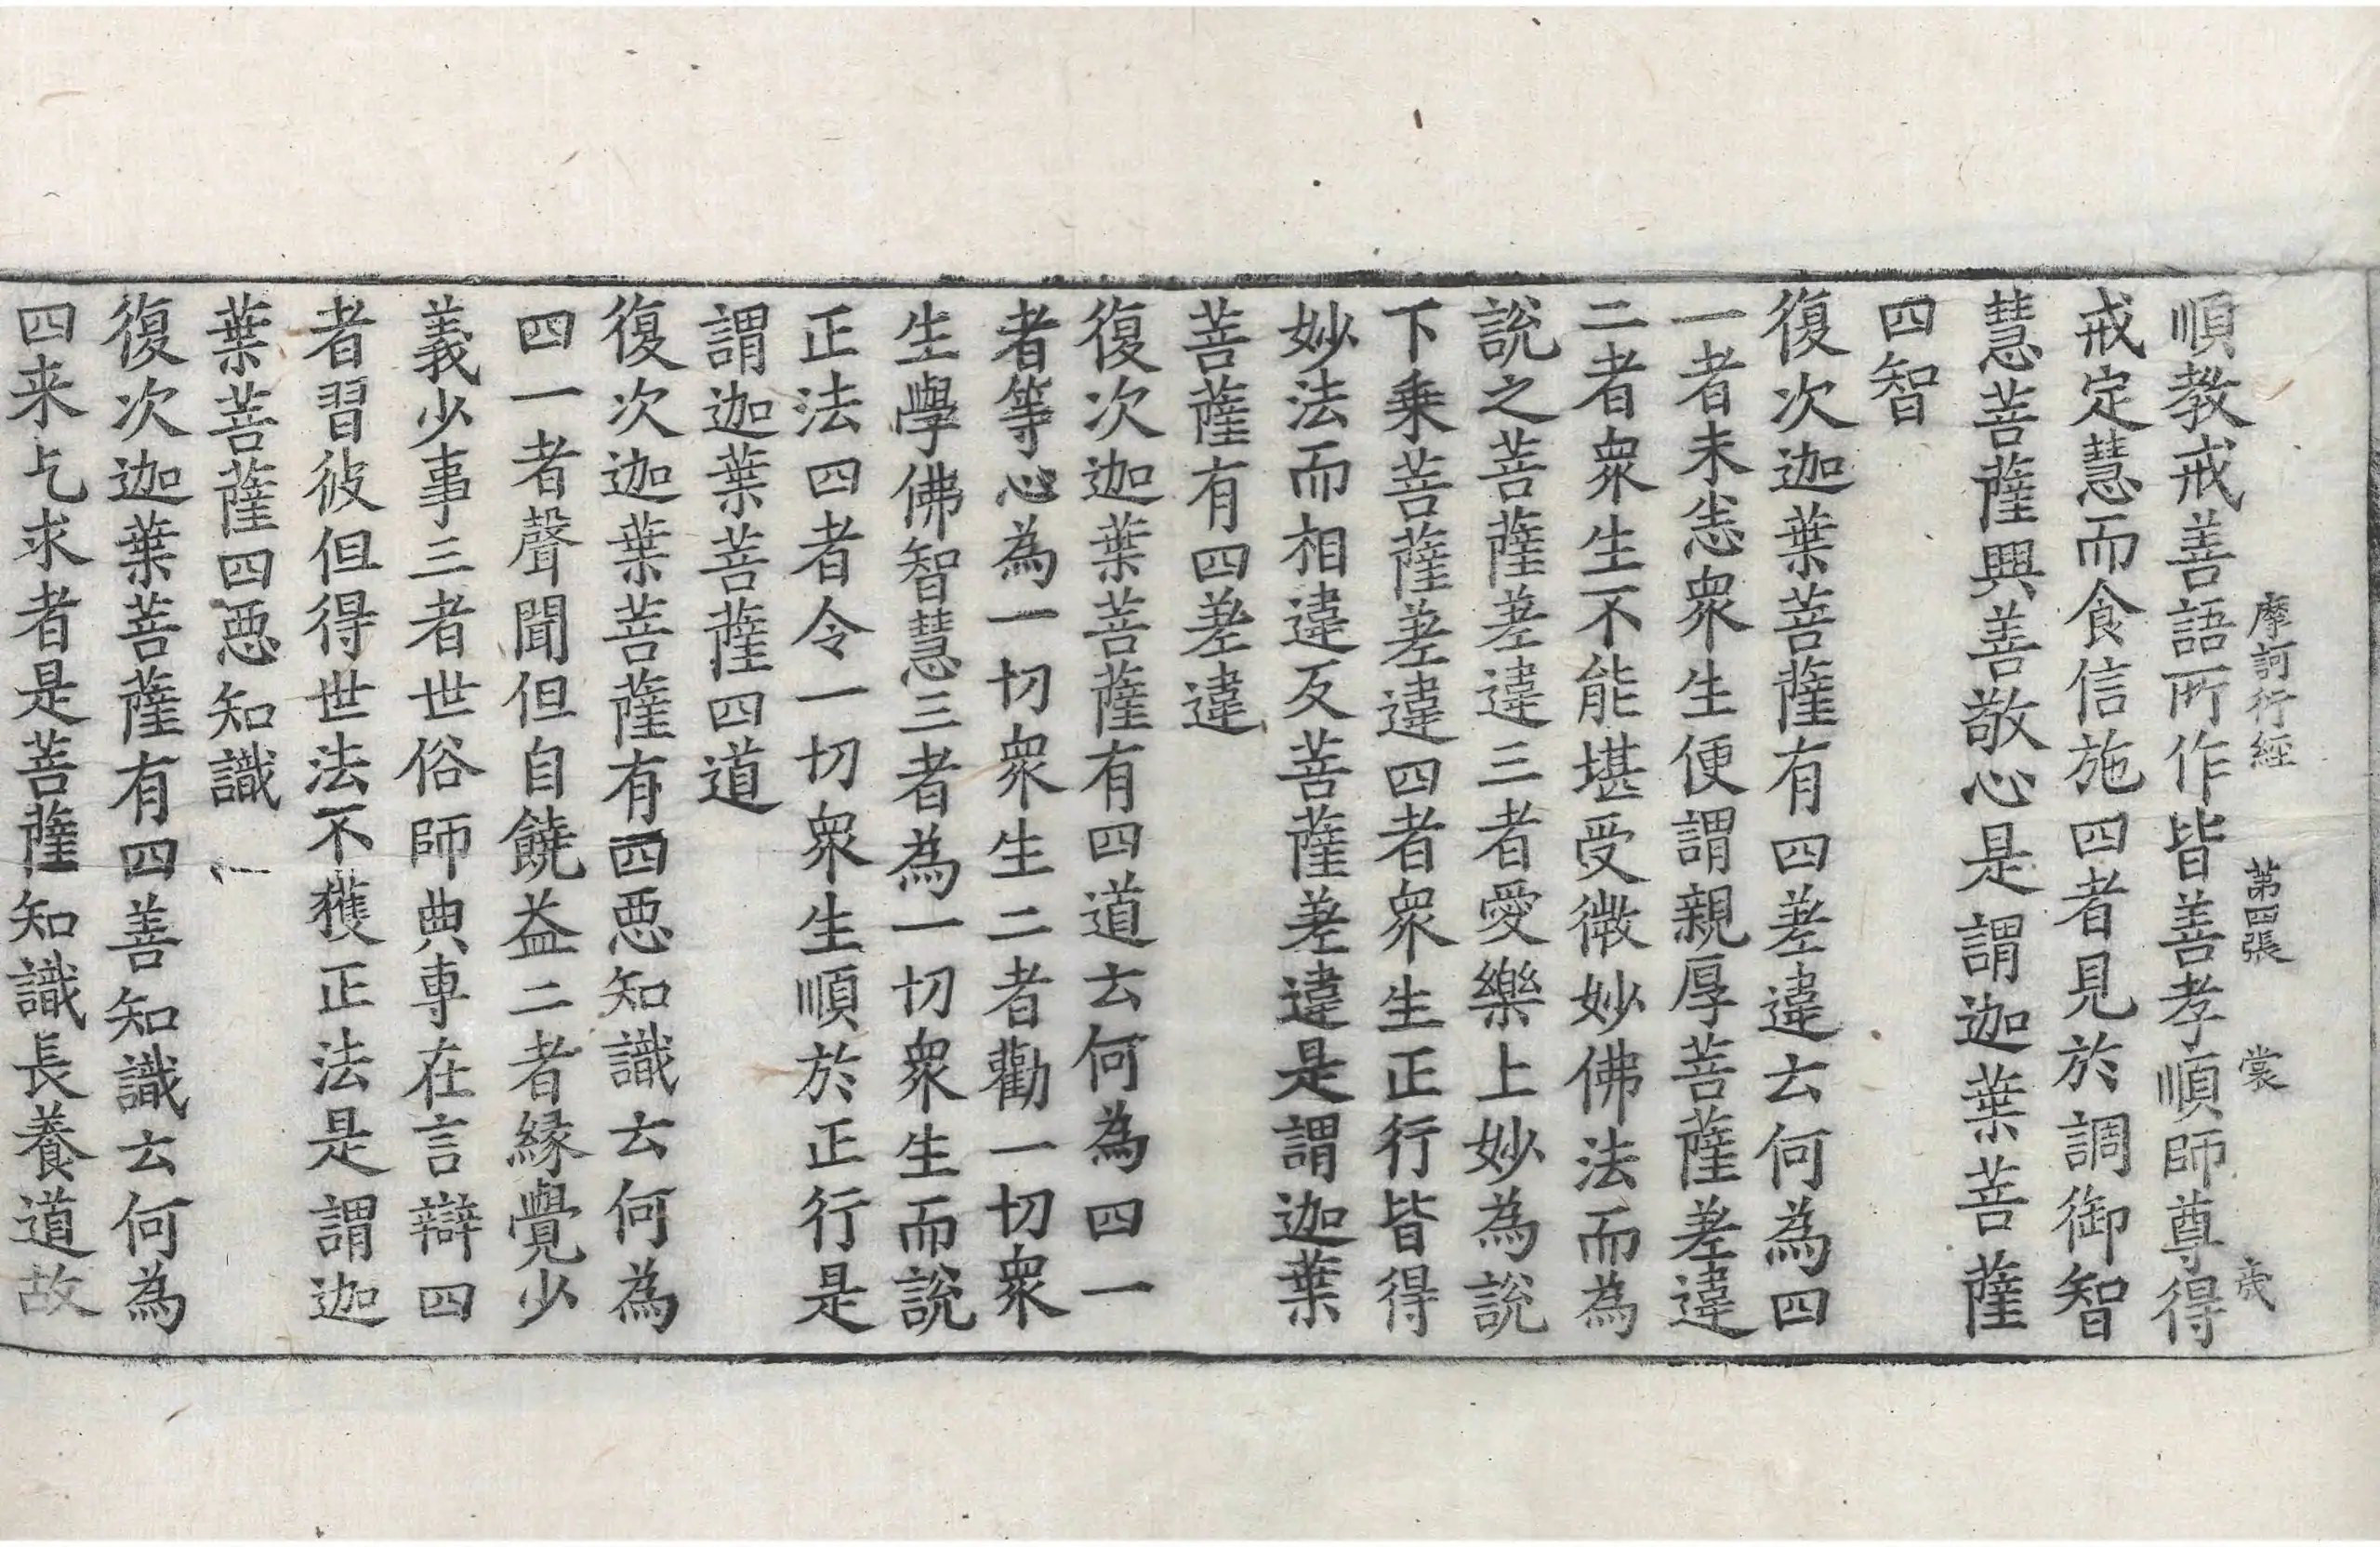 摩訶衍經 第四張 裳 茂
順教戒善語所作皆善孝順師尊得
戒定慧而食信施四者見於調御智
慧菩薩興善敬心是謂迦葉菩薩
四智
復次迦葉菩薩有四差違云何為四
一者未悉衆生便謂親厚菩薩差違
二者衆生不能堪受微妙佛法而為
說之菩薩差違三者愛樂上妙為說
下乗菩薩差違四者衆生正行皆得
妙法而相違反菩薩差違是謂迦葉
菩薩有四差違
復次迦葉菩薩有四道云何為四一
者等心為一切衆生二者勸一切衆
生學佛智慧三者為一切衆生而說
正法四者令一切衆生順於正行是
謂迦葉菩薩四道
復次迦葉菩薩有四惡知識云何為
四一者聲聞但自饒益二者縁覺少
義少事三者世俗師典專在言辯四
者習彼但得世法不獲正法是謂迦
葉菩薩四惡知識
復次迦葉菩薩有四善知識云何為
四来乞求者是菩薩知識長養道故